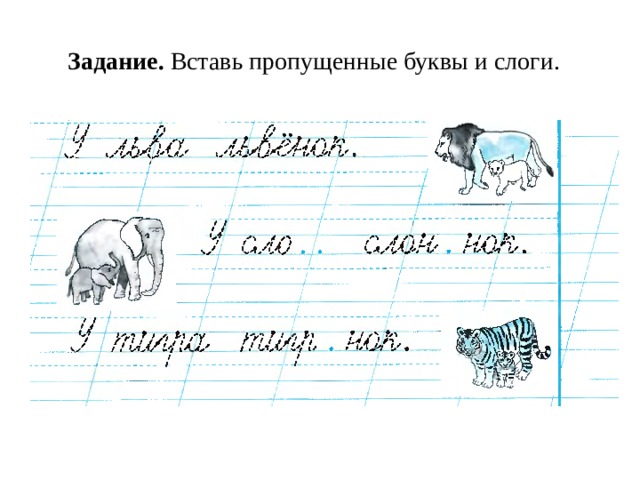 Задание. Вставь пропущенные буквы и слоги.
У льва львёнок.
У сло . . слон . нок.
У тигра тигр . нок.